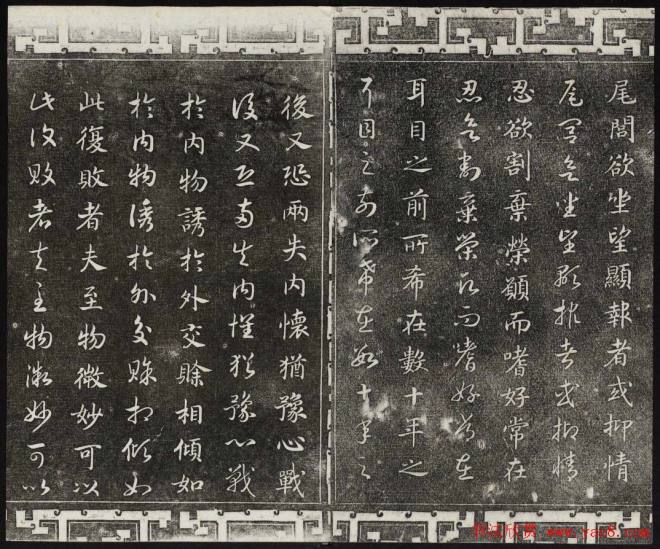 尾閭欲坐望顯報者或抑情
尾閭欲坐望顯報者或抑情
忍欲割棄榮願而嗜好常在
忍欲割棄榮願而嗜好常在
耳目之前所希在數十年之
耳目之前所希在數十年之
後又恐兩失內懷猶豫心戰
後又恐兩失內懷猶豫心戰
於內物誘於外交賒相傾如
於內物誘於外交賒相傾如
此復敗者夫至物微妙可以
此復敗者夫至物微妙可以
书法欣赏 www.yac8.com